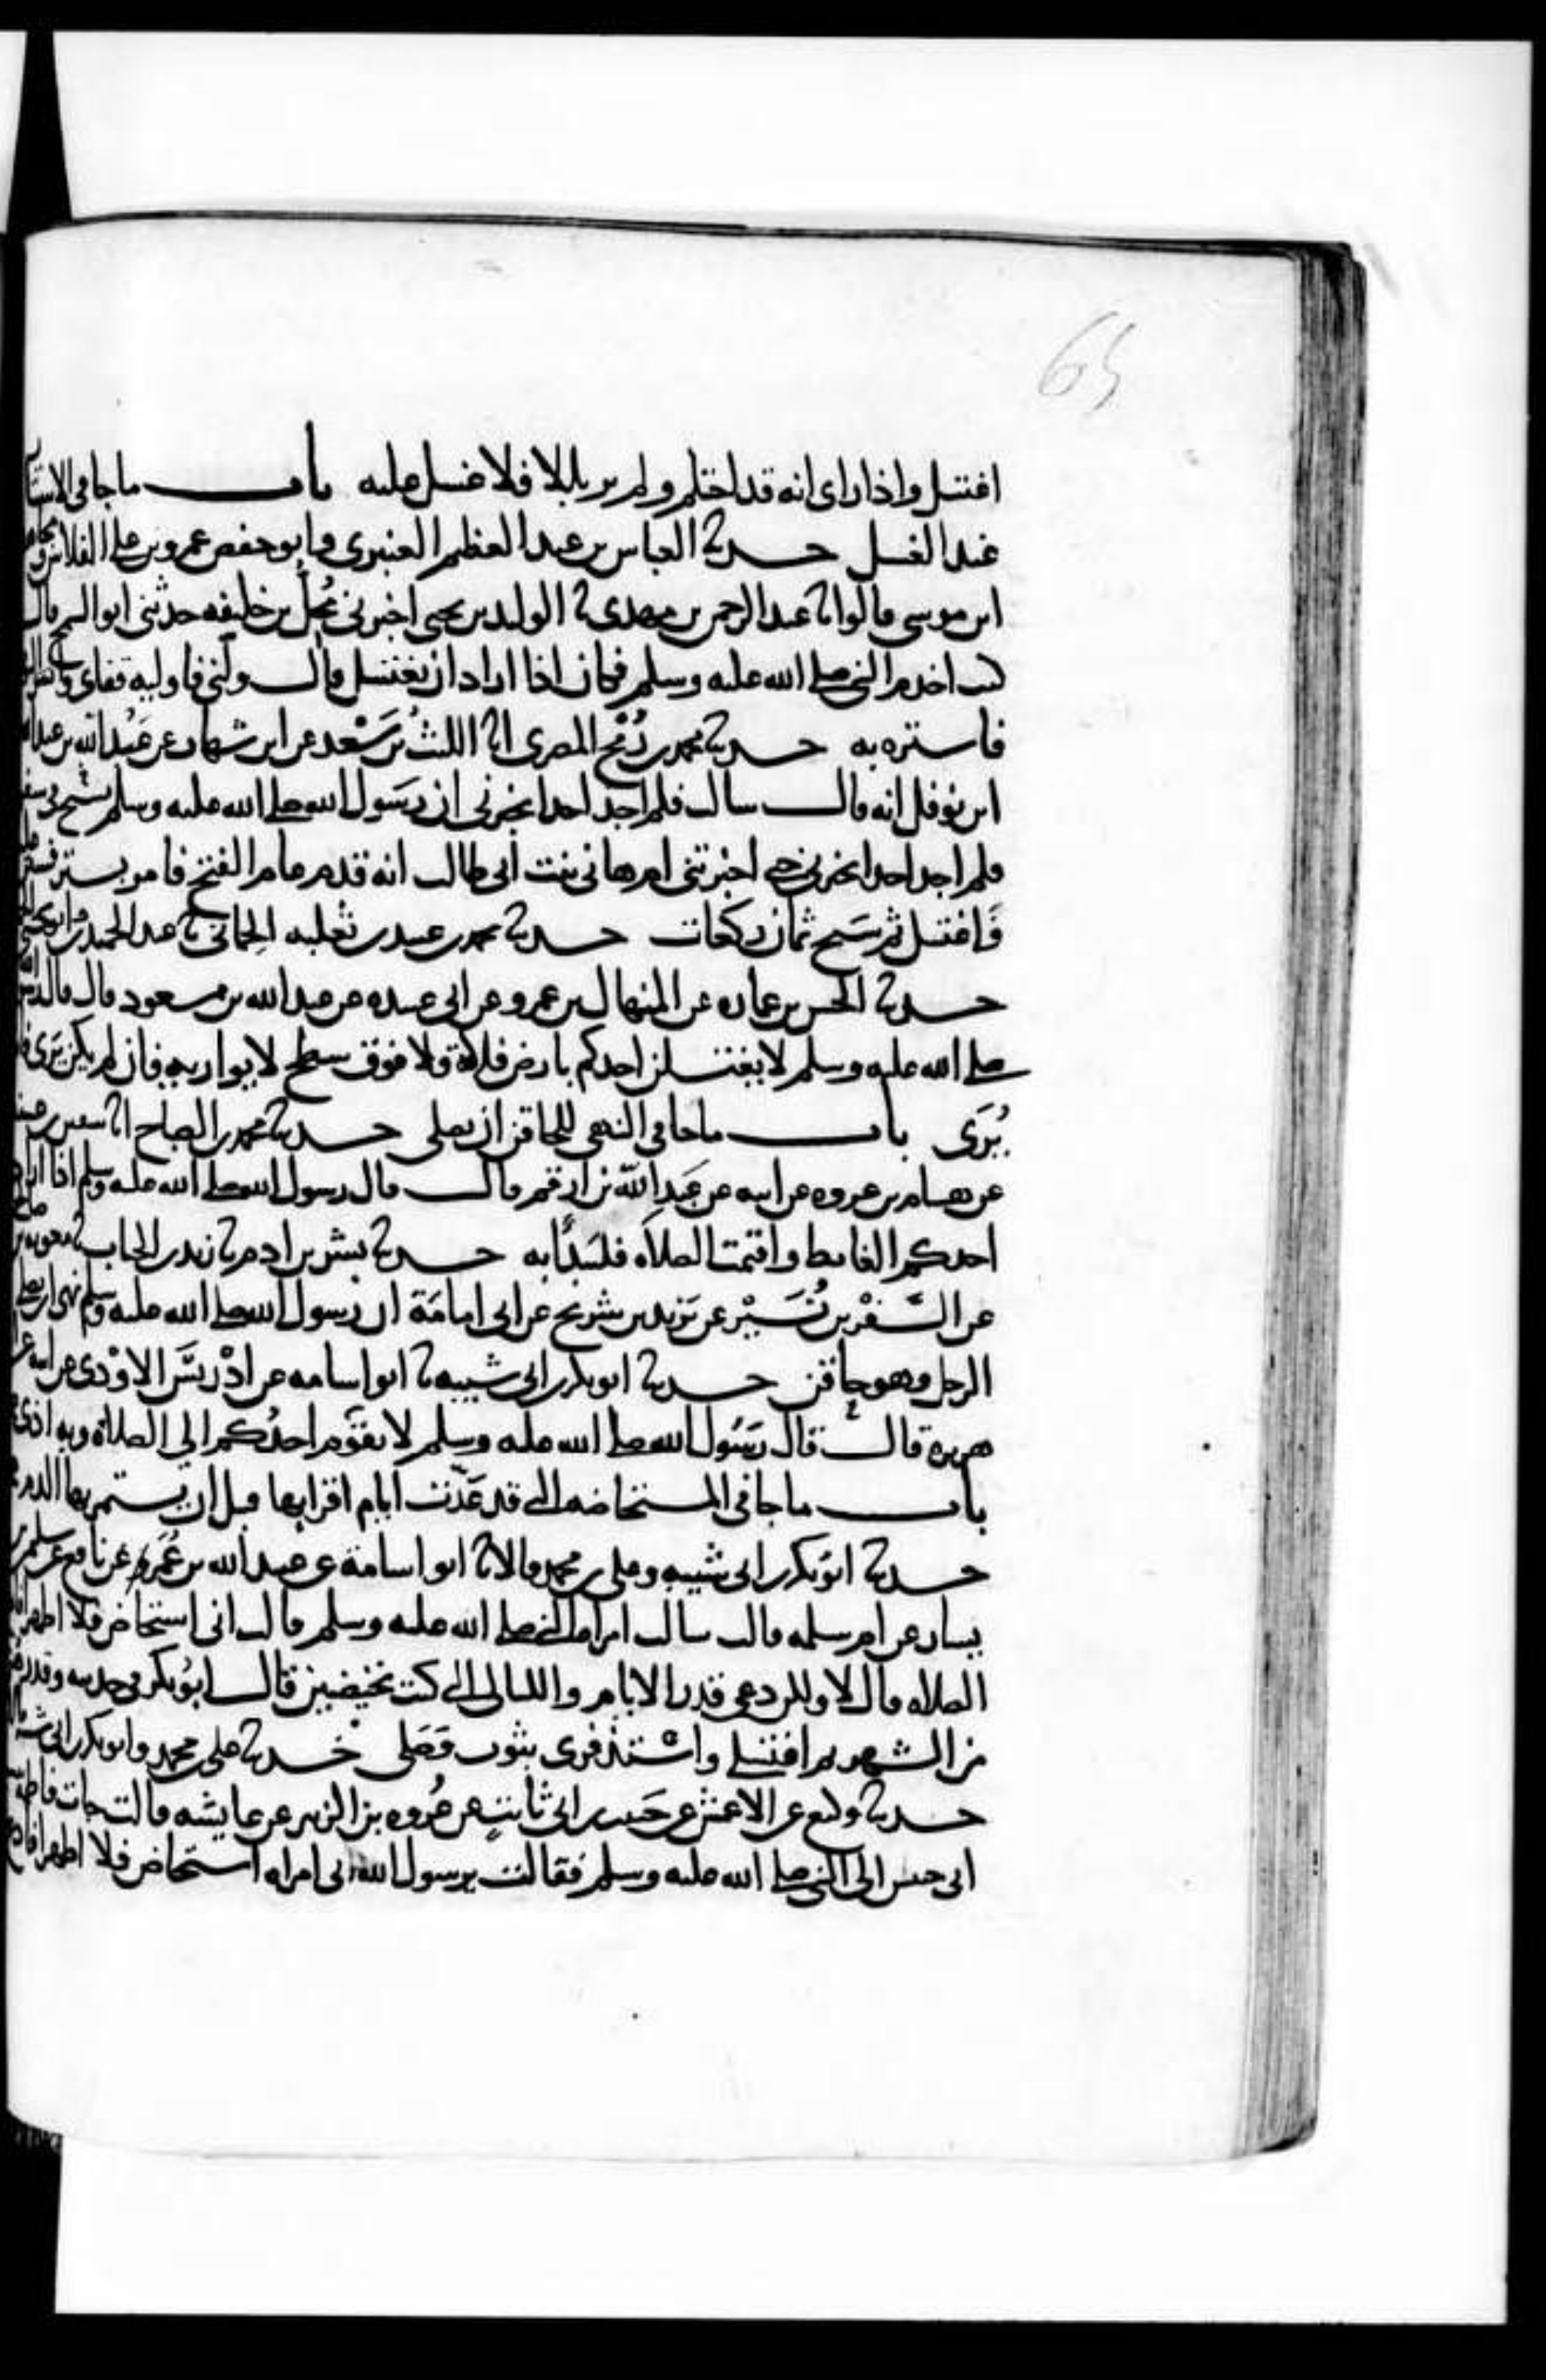 65
اغتسل واذا راى انه قد احتلم ولم ير بللا فلا غسل عليه باب ما جا في الاستتار
عند الغسل حدثنا العباس بن عبد العظيم العنبري وابو حفص عمرو بن علي الفلاس ومجاهد
ابن موسى قالوا ثنا عبد الرحمن بن مهدي ثنا الوليد بن يحيى اخبرني مُحِلّ بن خليفه حدثني ابو السمح قال
كنت اخدم النبي صلى الله عليه وسلم فكان اذا اراد ان يغتسل قال ولني فاوليه قفاي وانشر الثوب
فاستره به حدثنا محمد بن رُمْح المصري انا الليثُ بن سَعْد عن ابن شهاب عن عَبْد الله بن عبد الله
ابن نوفل انه قال سالت فلم اجد احدا يخبرني ان رسول الله صلى الله عليه وسلم سبح في سفر
فلم اجد احدا يخبرني حتى اخبرتني ام هاني بنت ابي طالب انه قدم عام الفتح فامر بستر فستر عليه
فَاغتسل ثم سَبح ثمان ركعات حدثنا محمد بن عبيد بن ثعلبه الحِمّاني ثنا عبد الحميد ابو يحيى
حدثنا الحسن بن عماره عن المنهال بن عمرو عن ابي عبيده عن عبد الله بن مسعود قال قال رسول الله
صلى الله عليه وسلم لا يغتسلن احدكم بارض فلاة ولا فوق سطح لا يواريه فان لم يكن يَرَى فانه
يُرَى باب ما جا في النهي للحاقن ان يصلي حدثنا محمد بن الصباح انا سفين بن عيينه
عن هشام بن عروه عن ابيه عن عَبدِ اللّه بن ارقم قال قال رسول الله صلى الله عليه وسلم اذا اراد
احدكم الغايط واقيمت الصلاه فليَبدَأ به حدثنا بشر بن ادم ثنا زيد بن الحباب ثنا معويه بن صالح
عن السَّفْر بن نُسَيْر عن يَزيد بن شريح عن ابي امامَة ان رسول الله صلى الله عليه وسلم نهى ان يصلي
الرجل وهو حاقن حدثنا ابو بكر بن ابي شيبه ثنا ابو اسامه عن ادْريسَ الاوْدي عن ابيه عن
هريرة قال قال رَسُول الله صلى الله عليه وسلم لا يقوم احدُكم الى الصلاة وبه اذى
باب ما جا في المستحاضه التي قد عَدّت ايام اقرايها قبل ان يستمر بها الدم
حدثنا ابو بكر بن ابي شيبه وعلي بن محمد قالا ثنا ابو اسامة عن عبيد الله بن عُمَر عن نافع عن سليمن بن
يسار عن ام سلمه قالت سالت امراة النبي صلى الله عليه وسلم قالت اني استحاض فلا اطهر افادع
الصلاه قال لا ولكن دعي قدر الايام والليالي التي كنت تحيضين قال ابو بكر في حديثه وقدرهن
من الشهر ثم اغتسلي واستذفري بثوب وَصَلي حدثنا علي بن محمد وابو بكر بن ابي شيبه قالا
حدثنا وكيع عن الاعمش عن حَبيب بن ابي ثابت عن عُروه بن الزبير عن عايشه قالت جات فاطمه بنت
ابي حبيش الى النبي صلى الله عليه وسلم فقالت يرسول الله اني امراه استحاض فلا اطهر افادع